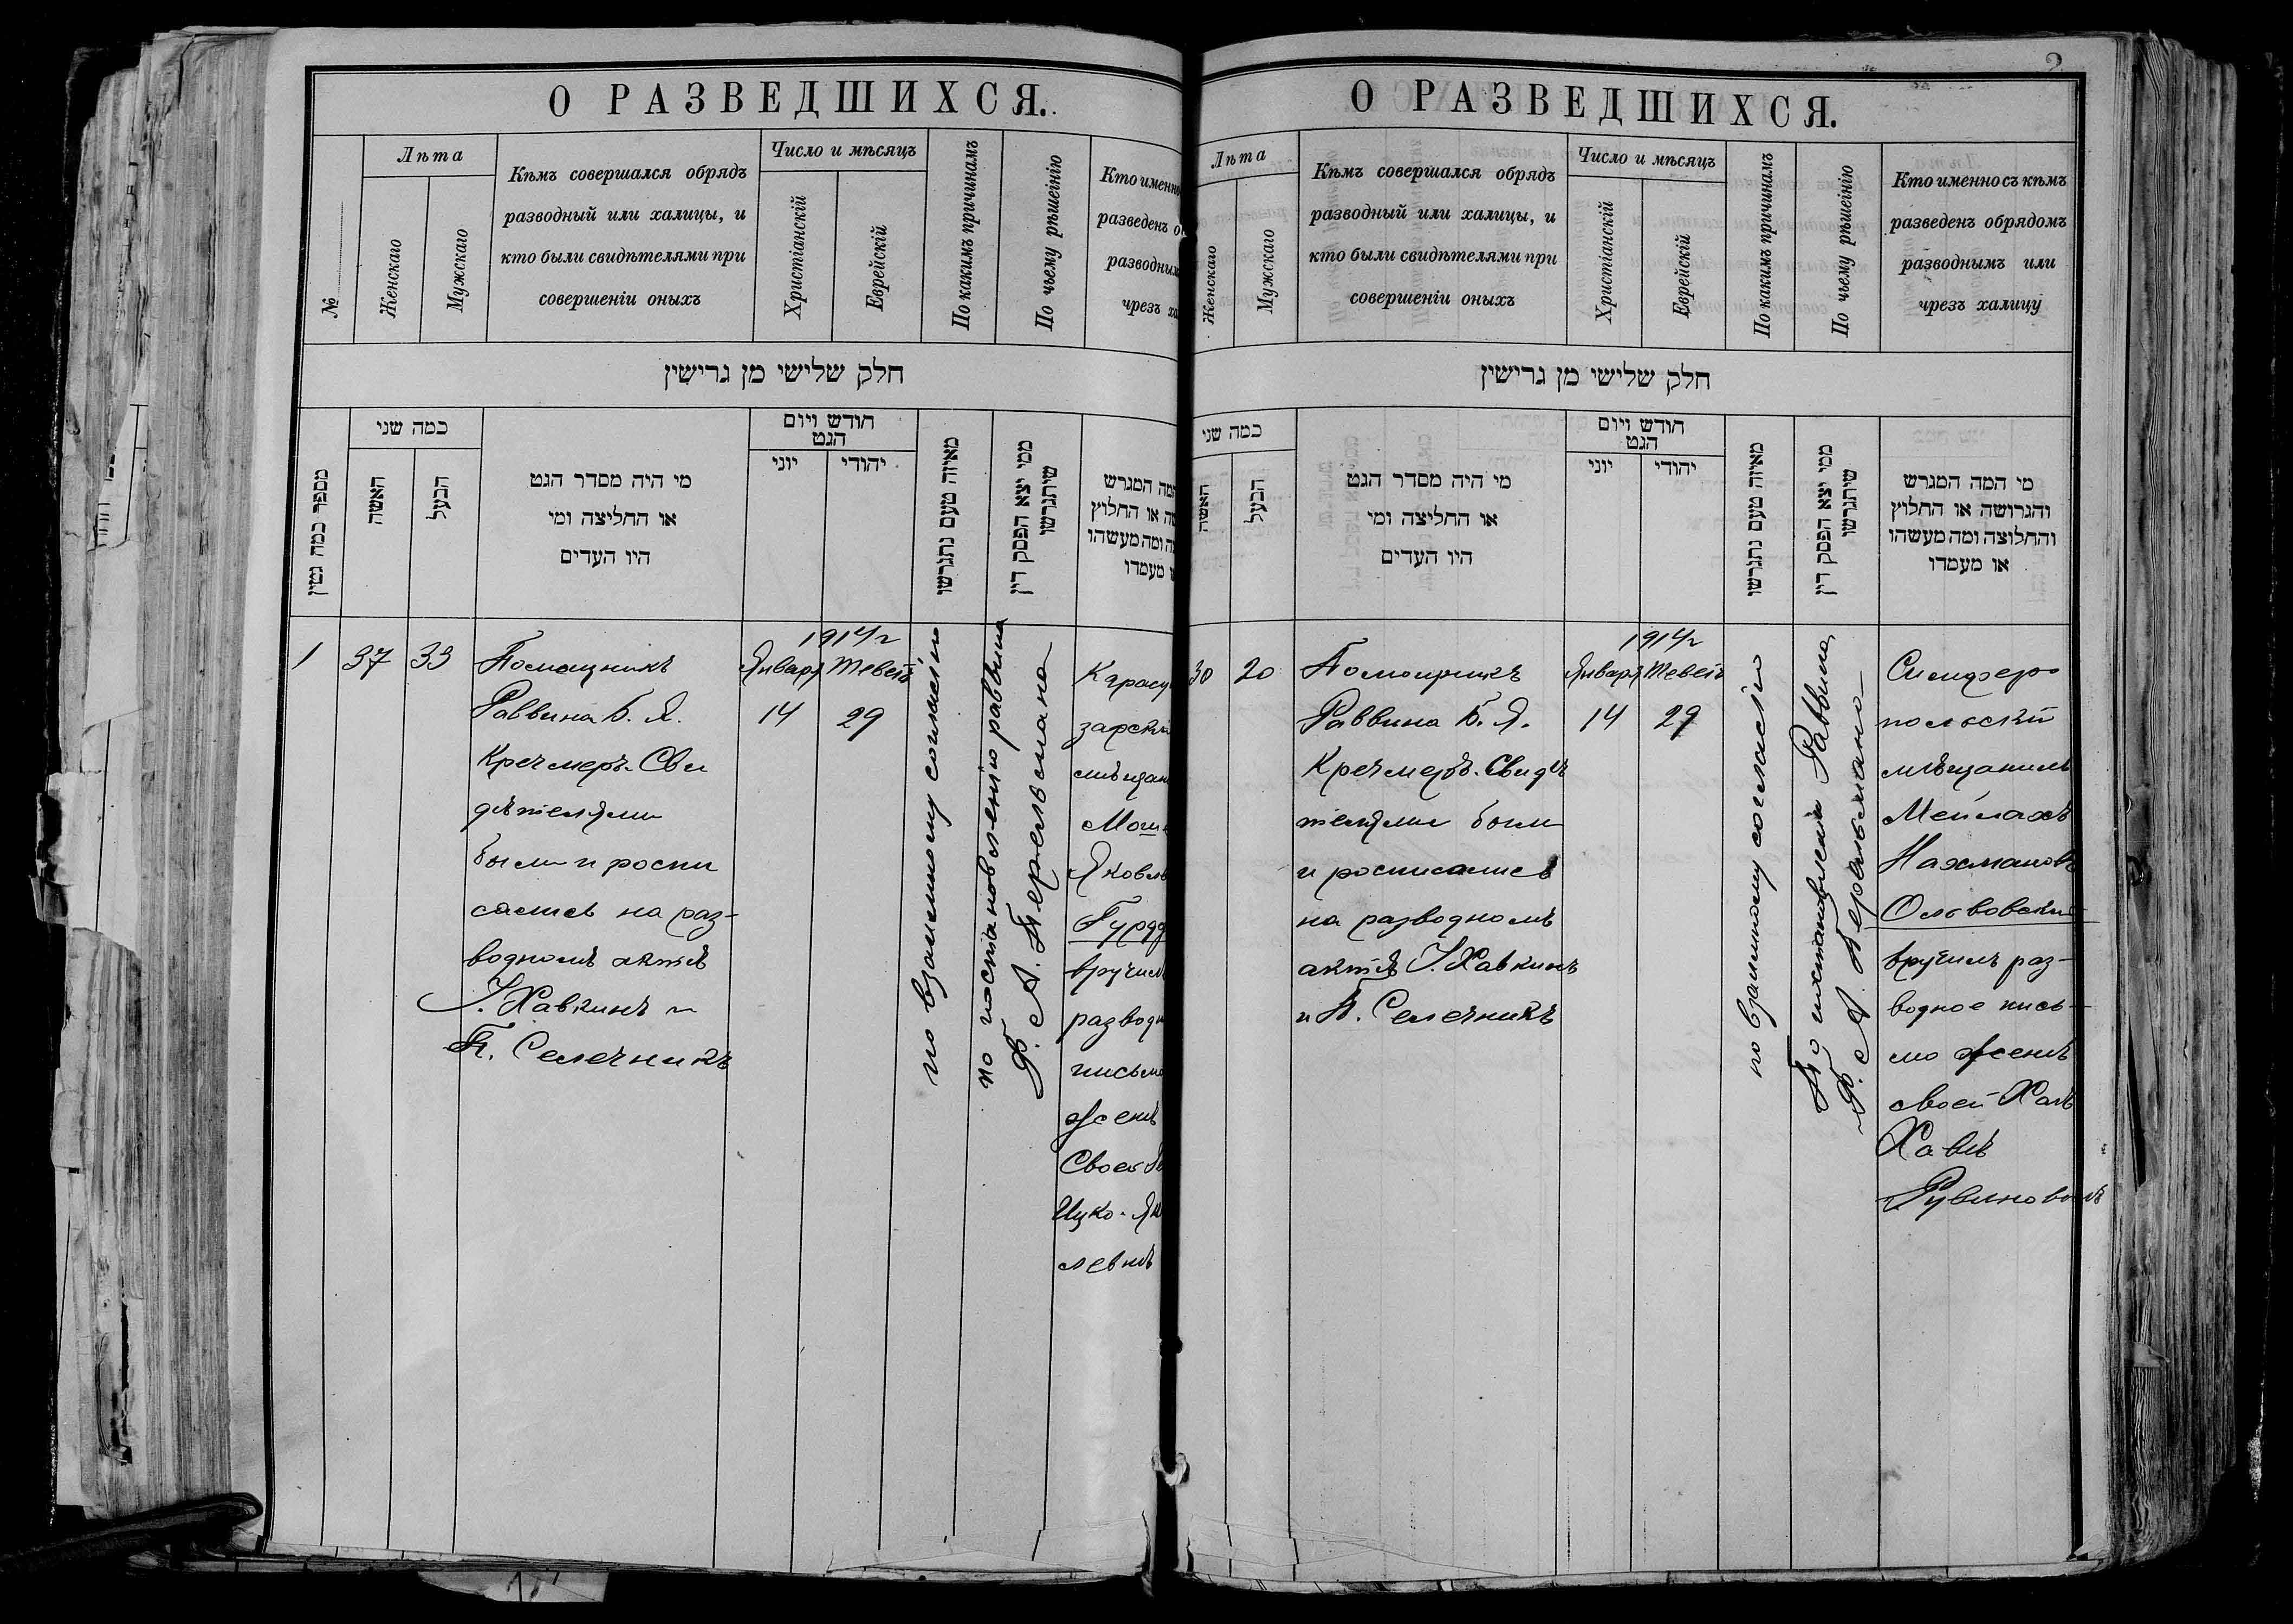 О РАЗВЕДШИХСЯ.
№
Лѣта
Женскаго
Мужскаго
Кѣмъ совершался обрядъ
разводный или халицы, и
кто были свидѣтелями при
совершеніи оныхъ
Число и мѣсяцъ
Христіанскій
Еврейскій
По какимъ причинамъ
По чьему рѣшенію
Кто именно
разведенъ
разводным
чрезъ
חלק שלישי מן גרישין
מספר כמה גטין
כמה שני
האשה
הבעל
מי היה מסדר הגט
או החליצה ומי
היו העדים
חודש ויום
הגט
יוני
יהודי
מאיזה טעם נתגרשו
ממי יצא הפסק דין
שיתגרשו
המה המגרש
או החלוץ
ומה מעשהו
מעמדו
1
37
33
Помощникъ
Раввина Б. Я.
Кречмеръ. Сви
дѣтелями
были и роспи
сались на раз-
водномъ актѣ
І. Хавкинъ и
П. Селечникъ
1914 г
Января
14
Теветъ
29
по взаимному согласію
по постановленію раввина
Ф. А. Перельмана
Карасу
зарскій
мѣщан
Мош
Яковл
Гурд
вручил
разводн
письмо
женѣ
своей
Цук
левнѣ
2
О РАЗВЕДШИХСЯ.
Лѣта
Женскаго
Мужскаго
Кѣмъ совершался обрядъ
разводный или халицы, и
кто были свидѣтелями при
совершеніи оныхъ
Число и мѣсяцъ
Христіанскій
Еврейскій
По какимъ причинамъ
По чьему рѣшенію
Кто именно съ кѣмъ
разведенъ обрядомъ
разводнымъ или
чрезъ халицу
חלק שלישי מן גרישין
כמה שני
האשה
הבעל
מי היה מסדר הגט
או החליצה ומי
היו העדים
חודש ויום
הגט
יוני
יהודי
מאיזה טעם נתגרשו
ממי יצא הפסק דין
שיתגרשו
מי המה המגרש
והגרושה או החלוץ
והחלוצה ומה מעשהו
או מעמדו
30
20
Помощникъ
Раввина Б. Я.
Кречмеръ. Свидѣ
телями были
и росписались
на разводномъ
актѣ І. Хавкинъ
и П. Селечникъ
1914 г
Января
14
Теветъ
29
по взаимному согласію
По постановленію Раввина
Ф. А. Перельмана
Симферо
польскій
мѣщанинъ
Мейлахъ
Нахмановъ
Ольвовскій
вручилъ раз-
водное пись-
мо женѣ
своей Хаѣ
Хавѣ
Рувиновнѣ